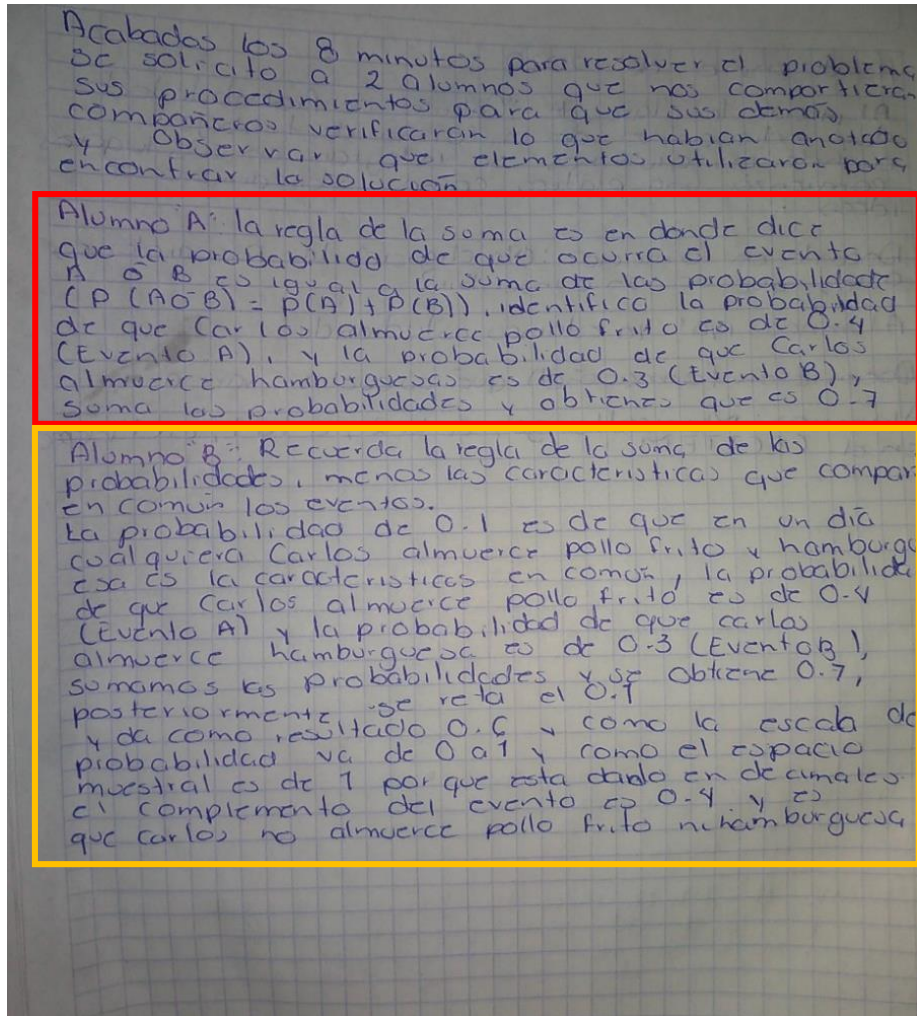 Acabados los 8 minutos para resolver el problema
se solicito a 2 alumnos que nos compartieran
sus procedimientos para que sus demás
compañeros verificaran lo que habian anotado
y Observaran que elementos utilizaron para
encontrar la solución
Alumno A: la regla de la suma es en donde dice
que la probabilida de que ocurra el evento
A ó B es igual a la suma de las probabilidade
(P (AÓB) = P(A) + P(B)), identifico la probabilidad
de que Carlos almuerce pollo frito es de 0.4
(Evento A), y la probabilidad de que Carlos
almuerce hamburguesas es de 0.3 (Evento B),
suma las probabilidades y obtienes que es 0.7
Alumno B: Recuerda la regla de la suma de las
probabilidades, menos las caracteristicas que compar
en común los eventos.
La probabilidad de 0.1 es de que en un día
cualquiera Carlos almuerce pollo frito y hamburgu
esa es la caracteristicas en común, la probabilida
de que Carlos almuerce pollo frito es de 0.4
(Evento A) y la probabilidad de que carlos
almuerce hamburguesa es de 0.3 (Evento B),
sumamos las probabilidades y se obtiene 0.7,
posteriormente se reta el 0.1
y da como resultado 0.6 y como la escala de
probabilidad va de 0 a 1 y como el espacio
muestral es de 1 por que esta dado en decimales
el complemento del evento es 0.4 y es
que Carlos no almuerce pollo frito ni hamburguesa